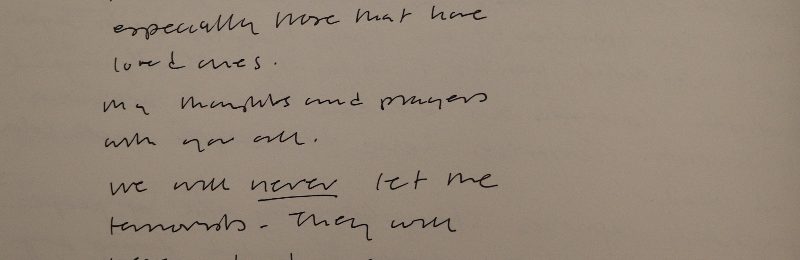 especially those that have
loved ones.
My thoughts and prayers
with you all.
We will never let the
terrorists - They will